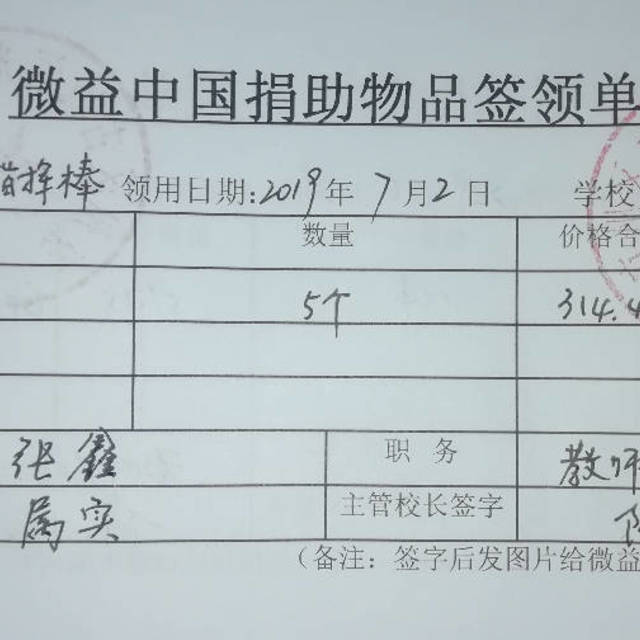 微益中国捐助物品签领单
指挥棒 领用日期:2019年7月2日 学校
数量 价格合
5个 314.4
张鑫 职 务 教师
属实 主管校长签字
(备注:签字后发图片给微益